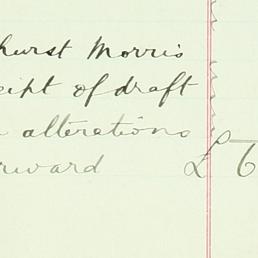 hurst Morris
eipt of draft
alterations
rward £6